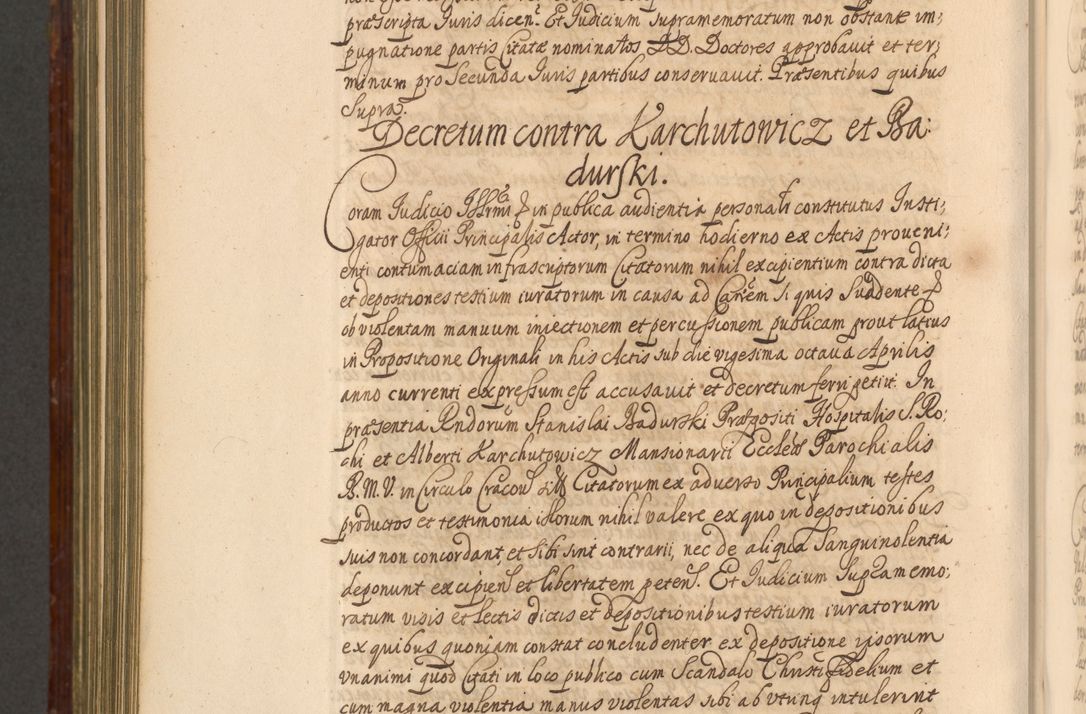 præscripta Iuris dicen: Et Iudicium supramemoratum non obstante im,
pugnatione partis Citatæ nominatos DD. Doctores approbauit et ter,
minum pro Secunda Iuris partibus conseruauit. Præsentibus quibus
Supra.
Decretum contra Karchutowicz et Ba:
durski.
Coram Iudicio Illrmi & in publica audientia personalr constitutus Insti,
gator Officii Principalis Actor, in termino hodierno ex Actis proueni,
enti contumaciam infrascriptorum Citatorum nihil excipientium contra dicta
et depositiones testium iuratorum in causa ad Can:em si quis Suadente &
ob violentam manuum iniectionem et percussionem publicam prout latius
in Propositione Originali in his Actis sub die vigesima octaua Aprilis
anno currenti expressum est accusauit et decretum ferri petiit. In
præsentia Rndorum Stanislai Badurski Præpositi Hospitalis S. Ro,
chi et Alberti Karchutowicz Mansionarii Eccleæ Parochialis
B. M. V. in Circulo Cracou Citatorum ex aduerso Principalium testes
productos et testimonia illorum nihil valere ex quo in depositionibus
suis non concordant, et sibi sint contrarii, nec de aliqua Sanguinolentia
deponunt excipien et libertatem peten. Et Iudicium Supramemo,
ratum visis et lectis dictis et depositionibus testium iuratorum
ex quibus quoniam constat concludenter ex depositione ipsorum
vnanimi quod Citati in loco publico cum Scandalo Christi Fidelium et
cum magna violentia manus violentas sibi ab vtrinq intulerint